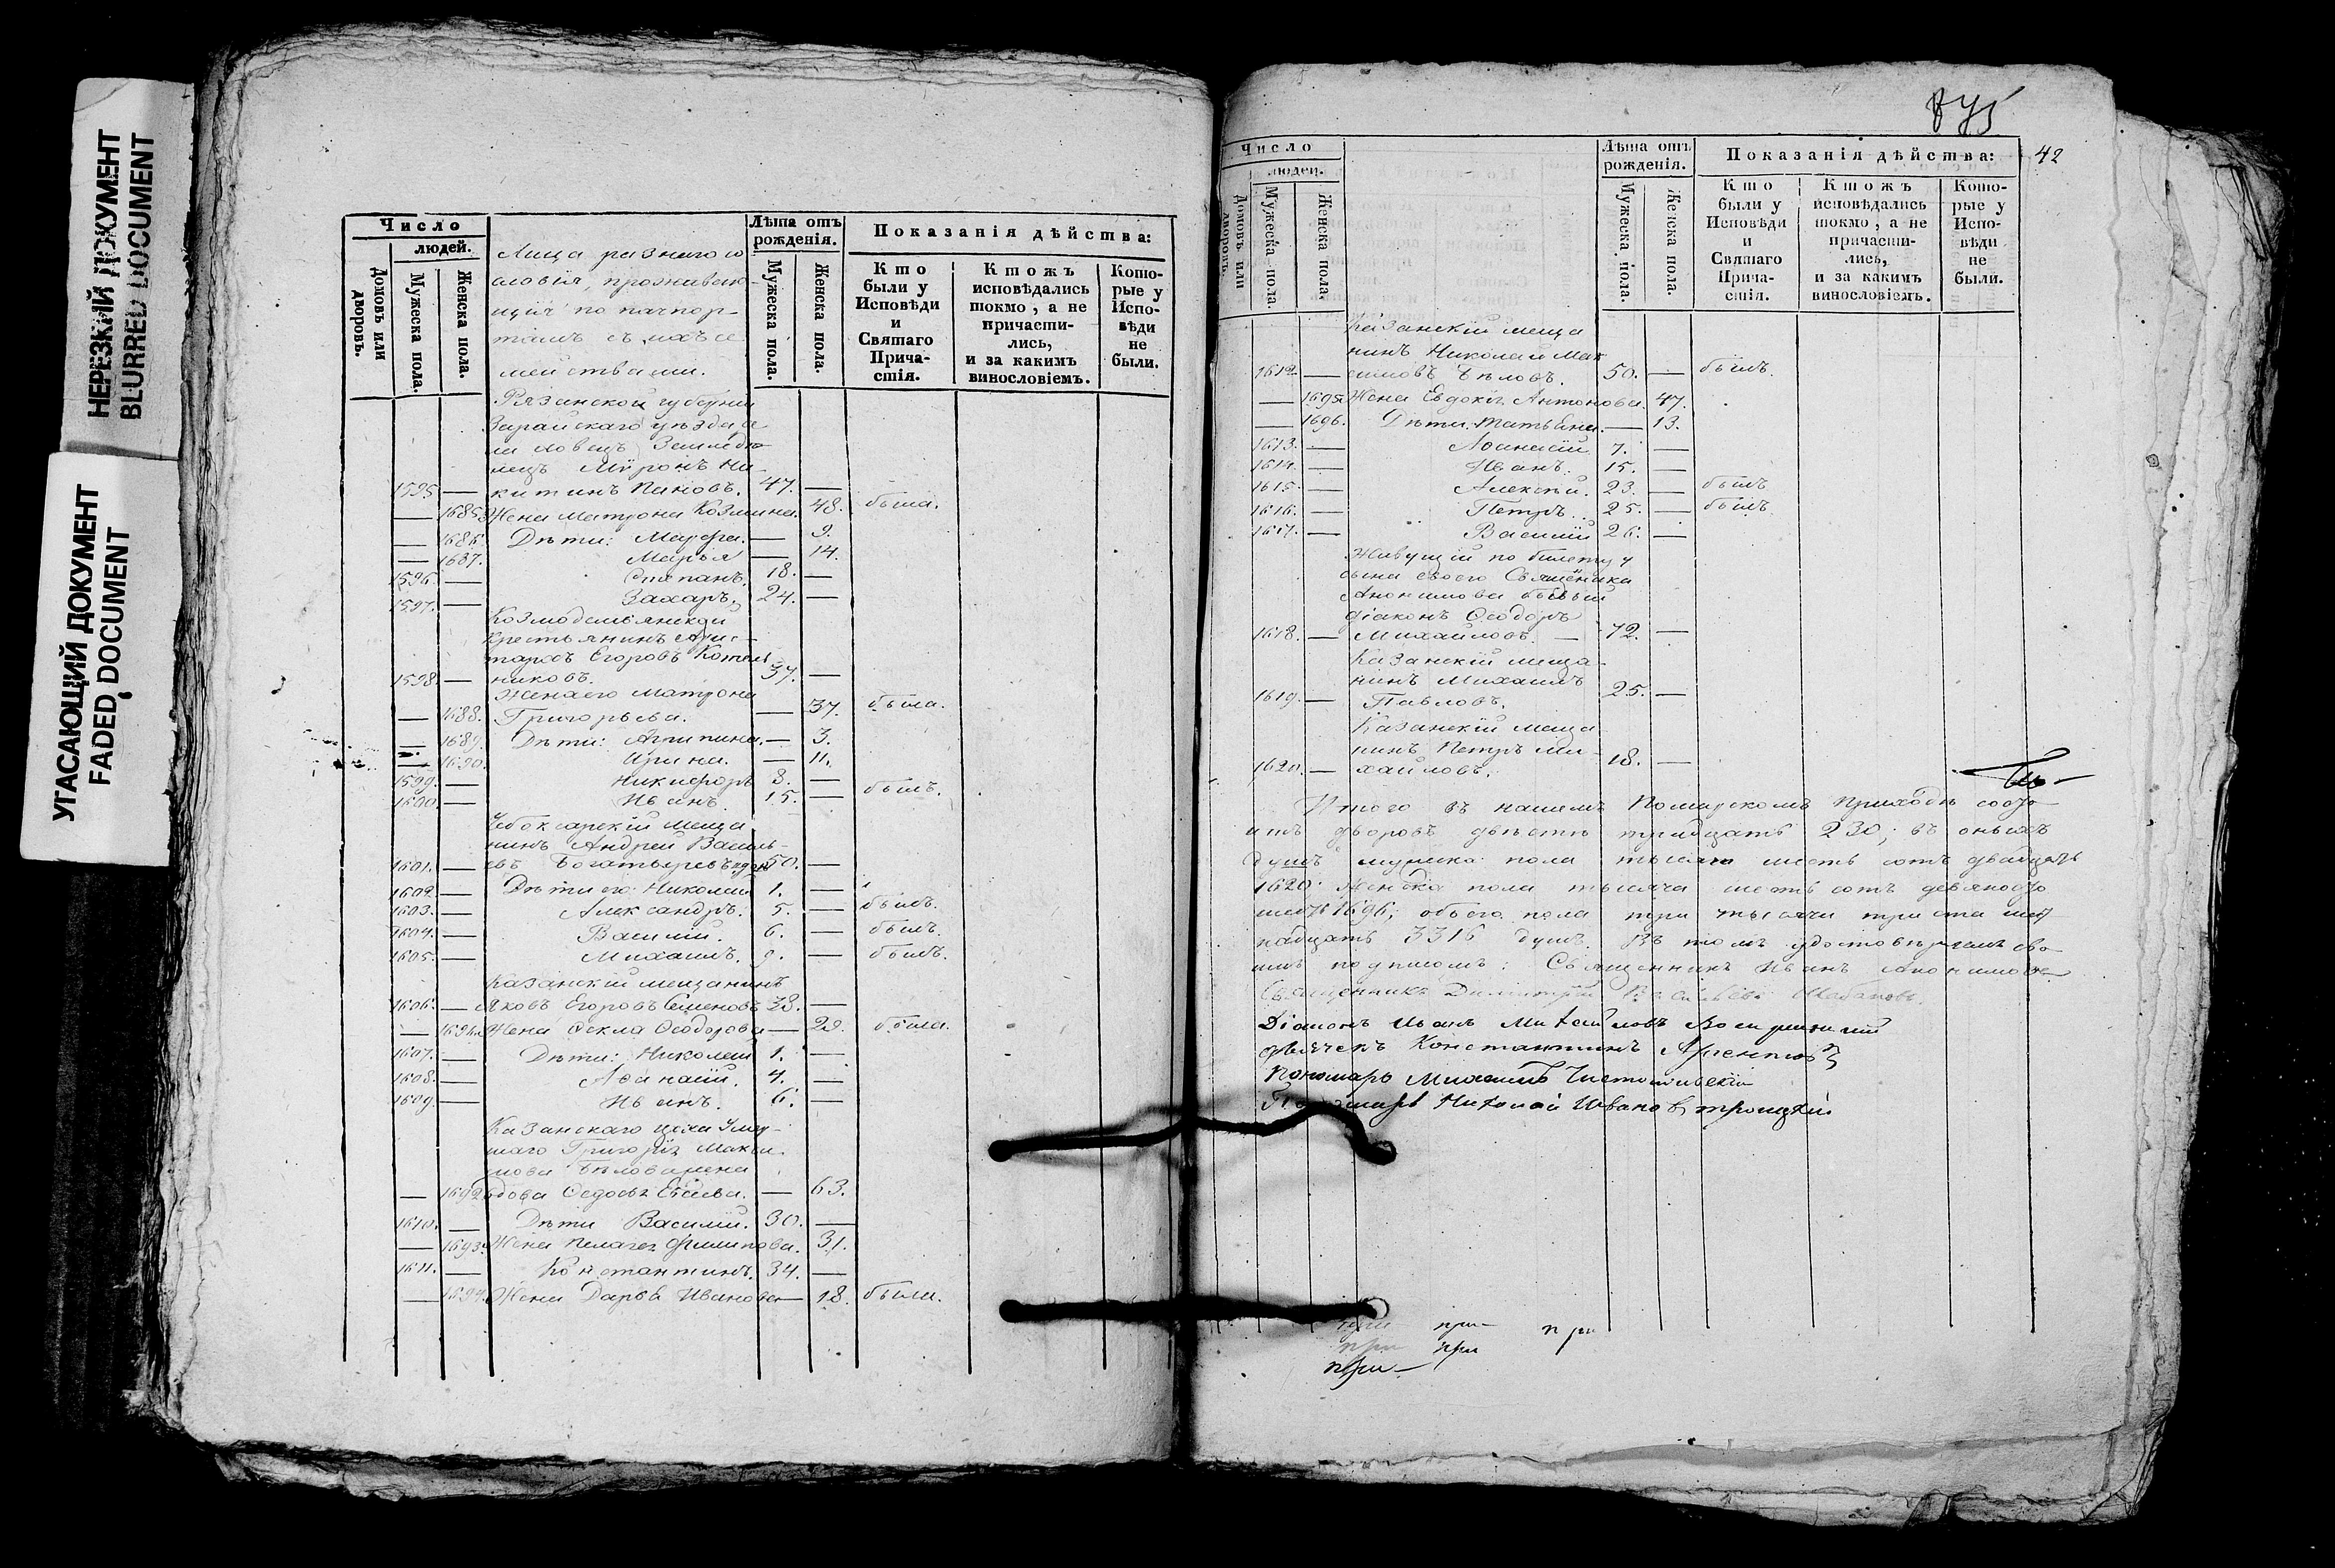 НЕРЕЗКИЙ ДОКУМЕНТ
BLURRED DOCUMENT
УГАСАЮЩИЙ ДОКУМЕНТ
FADED DOCUMENT
Число
людей.
Домовъ или дворовъ.
Мужеска пола.
Женска пола.
Лѣта отъ рожденія.
Мужеска пола.
Женска пола.
Показанія дѣйства:
Кто были у Исповѣди и Святаго Причастія.
Ктожъ исповѣдались токмо, а не причастились, и за какимъ винословіемъ.
Которые у Исповѣди не были.
Лица разнаго со
словія, проживаю-
щіи по пачпор-
тамъ съ ихъ се
мействами.
Рязанской губерніи
Зарайскаго уѣзда
Миронъ Ни-
1595. — китинъ Пановъ. 47. —
— 1685. Жена Матрона Козмина. 48. была.
— 1686. Дѣти: Марфа. — 9.
— 1687. Марья — 14.
1596. — Степанъ. 18. —
1597. — Захаръ. 24. —
Козмодемьянской
крестьянинъ Арис-
тархъ Егоровъ Котель
1598. — никовъ. 37. —
Жена его Матрона
— 1688. Григорьева. — 37. была.
— 1689. Дѣти: Агрипина. — 3.
— 1690. Ирина. — 11.
1599. — Никифоръ 8. —
1600. — Иванъ. 15. — былъ.
Чебоксарскій меща
нинъ Андрей Василь-
1601. — евъ Богатыревъ вдовъ 50. —
1602. — Дѣти его: Николай 1. —
1603. — Александръ. 5. — былъ.
1604. — Василій. 6. — былъ.
1605. — Михаилъ. 9. — былъ.
Казанскій мещанинъ
1606. — Яковъ Егоровъ Семеновъ 38. —
— 1691. Жена Өекла Өеодорова — 29. была.
1607. — Дѣти: Николай 1. —
1608. — Аѳанасій. 4. —
1609. — Иванъ. 6. —
Казанскаго цеха умер-
шаго Григорія Макси
мова Бѣлова жена
— 1692. вдова Өедосья — 63.
1610. — Дѣти Василій. 30. —
— 1693. Жена Пелагея Филипова. 31.
1611. — Константинъ. 34. —
— 1694. Жена Дарья Иванова — 18. были.
42
Число
людей.
Домовъ или дворовъ.
Мужеска пола.
Женска пола.
Лѣта отъ рожденія.
Мужеска пола.
Женска пола.
Показанія дѣйства:
Кто были у Исповѣди и Святаго Причастія.
Ктожъ исповѣдались токмо, а не причастились, и за какимъ винословіемъ.
Которые у Исповѣди не были.
Казанскій меща
нинъ Николай Мак
1612. — симовъ Бѣловъ. 50. — былъ.
— 1695. Жена Евдокія Антонова. 47.
— 1696. Дѣти: Татьяна. — 13.
1613. — Аѳанасій 7. —
1614. — Иванъ. 15. —
1615. — Алексѣй. 23. — былъ
1616. — Петръ. 25. — былъ
1617. — Василій 26. —
Живущій по билету у
сына своего Священика
Акокимова бывый
діаконъ Өеодоръ
1618. — Михаиловъ. — 72. —
Казанскій меща-
нинъ Михаилъ
1619. — Павловъ. 25. —
Казанскій меща
нинъ Петръ Ми-
1620. — хайловъ. 18. —
Итого въ нашемъ Помарскомъ приходѣ состо-
итъ дворовъ двѣсти тридцать 230; въ оныхъ
душъ мужеска пола тысяча шесть сотъ двадцать
1620. Женска пола тысяча шесть сотъ девяносто
шесть 1696; обоего пола три тысячи триста шест
надцать 3316 душъ. Въ томъ удостовѣряемъ сво
имъ подписомъ: Священникъ Иванъ
Священникъ Димитрій Васильевъ
Діаконъ Иванъ Михаиловъ
дьячекъ Константинъ
Пономарь Михаилъ
Пономарь Николай Ивановъ Троицкій
при при
при при
при